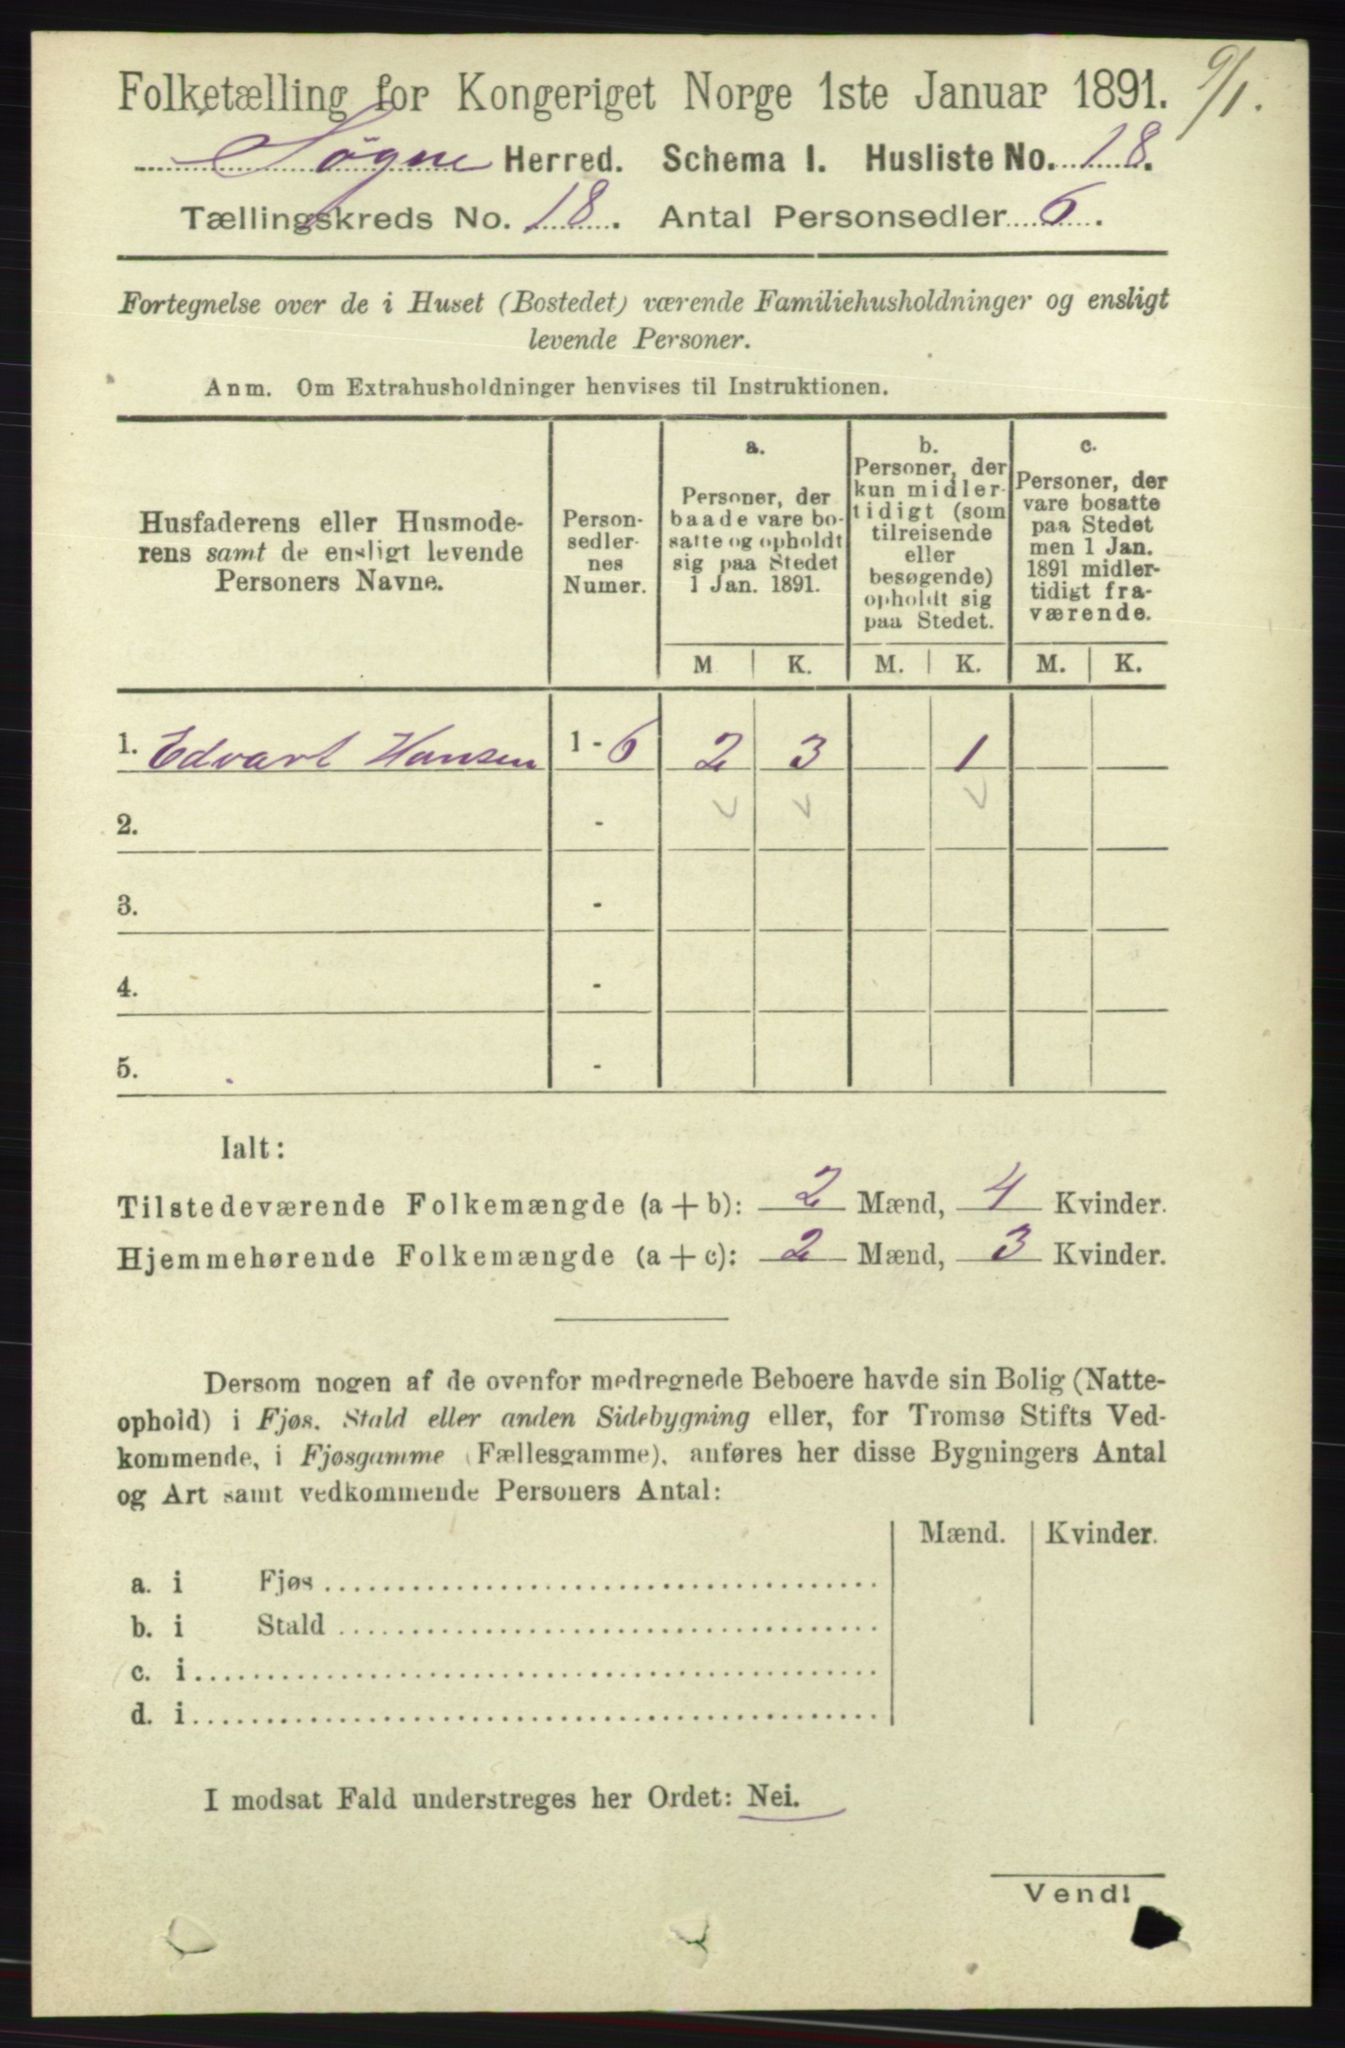 Folketælling for Kongeriget Norge 1ste Januar 1891. 9/1.
Søgne Herred. Schema I. Husliste No. 18.
Tællingskreds No. 18. Antal Personsedler 6.
Fortegnelse over de i Huset (Bostedet) værende Familiehusholdninger og ensligt
levende Personer.
Anm. Om Extrahusholdninger henvises til Instruktionen.
Husfaderens eller Husmode-
rens samt de ensligt levende
Personers Navne.
Person-
sedler-
nes
Numer.
a.
Personer, der
baade vare bo-
satte og opholdt
sig paa Stedet
1 Jan. 1891.
b.
Personer, der
kun midler-
tidigt (som
tilreisende
eller
besøgende)
opholdt sig
paa Stedet.
c.
Personer, der
vare bosatte
paa Stedet
men 1 Jan.
1891 midler-
tidigt fra-
værende.
M K. M. K. M. K.
1. Edvart Hansen 1 - 6 2 3 1
2. -
3. -
4. -
5. -
Ialt:
Tilstedeværende Folkemængde (a + b): 2 Mænd, 4 Kvinder.
Hjemmehørende Folkemængde (a + c): 2 Mænd, 3 Kvinder.
Dersom nogen af de ovenfor medregnede Beboere havde sin Bolig (Natte-
ophold) i Fjøs, Stald eller anden Sidebygning eller, for Tromsø Stifts Ved-
kommende, i Fjøsgamme (Fællesgamme), anføres her disse Bygningers Antal
og Art samt vedkommende Personers Antal:
Mænd. Kvinder.
a. i Fjøs
b. i Stald
c. i
d. i
I modsat Fald understreges her Ordet: Nei.
Vend!